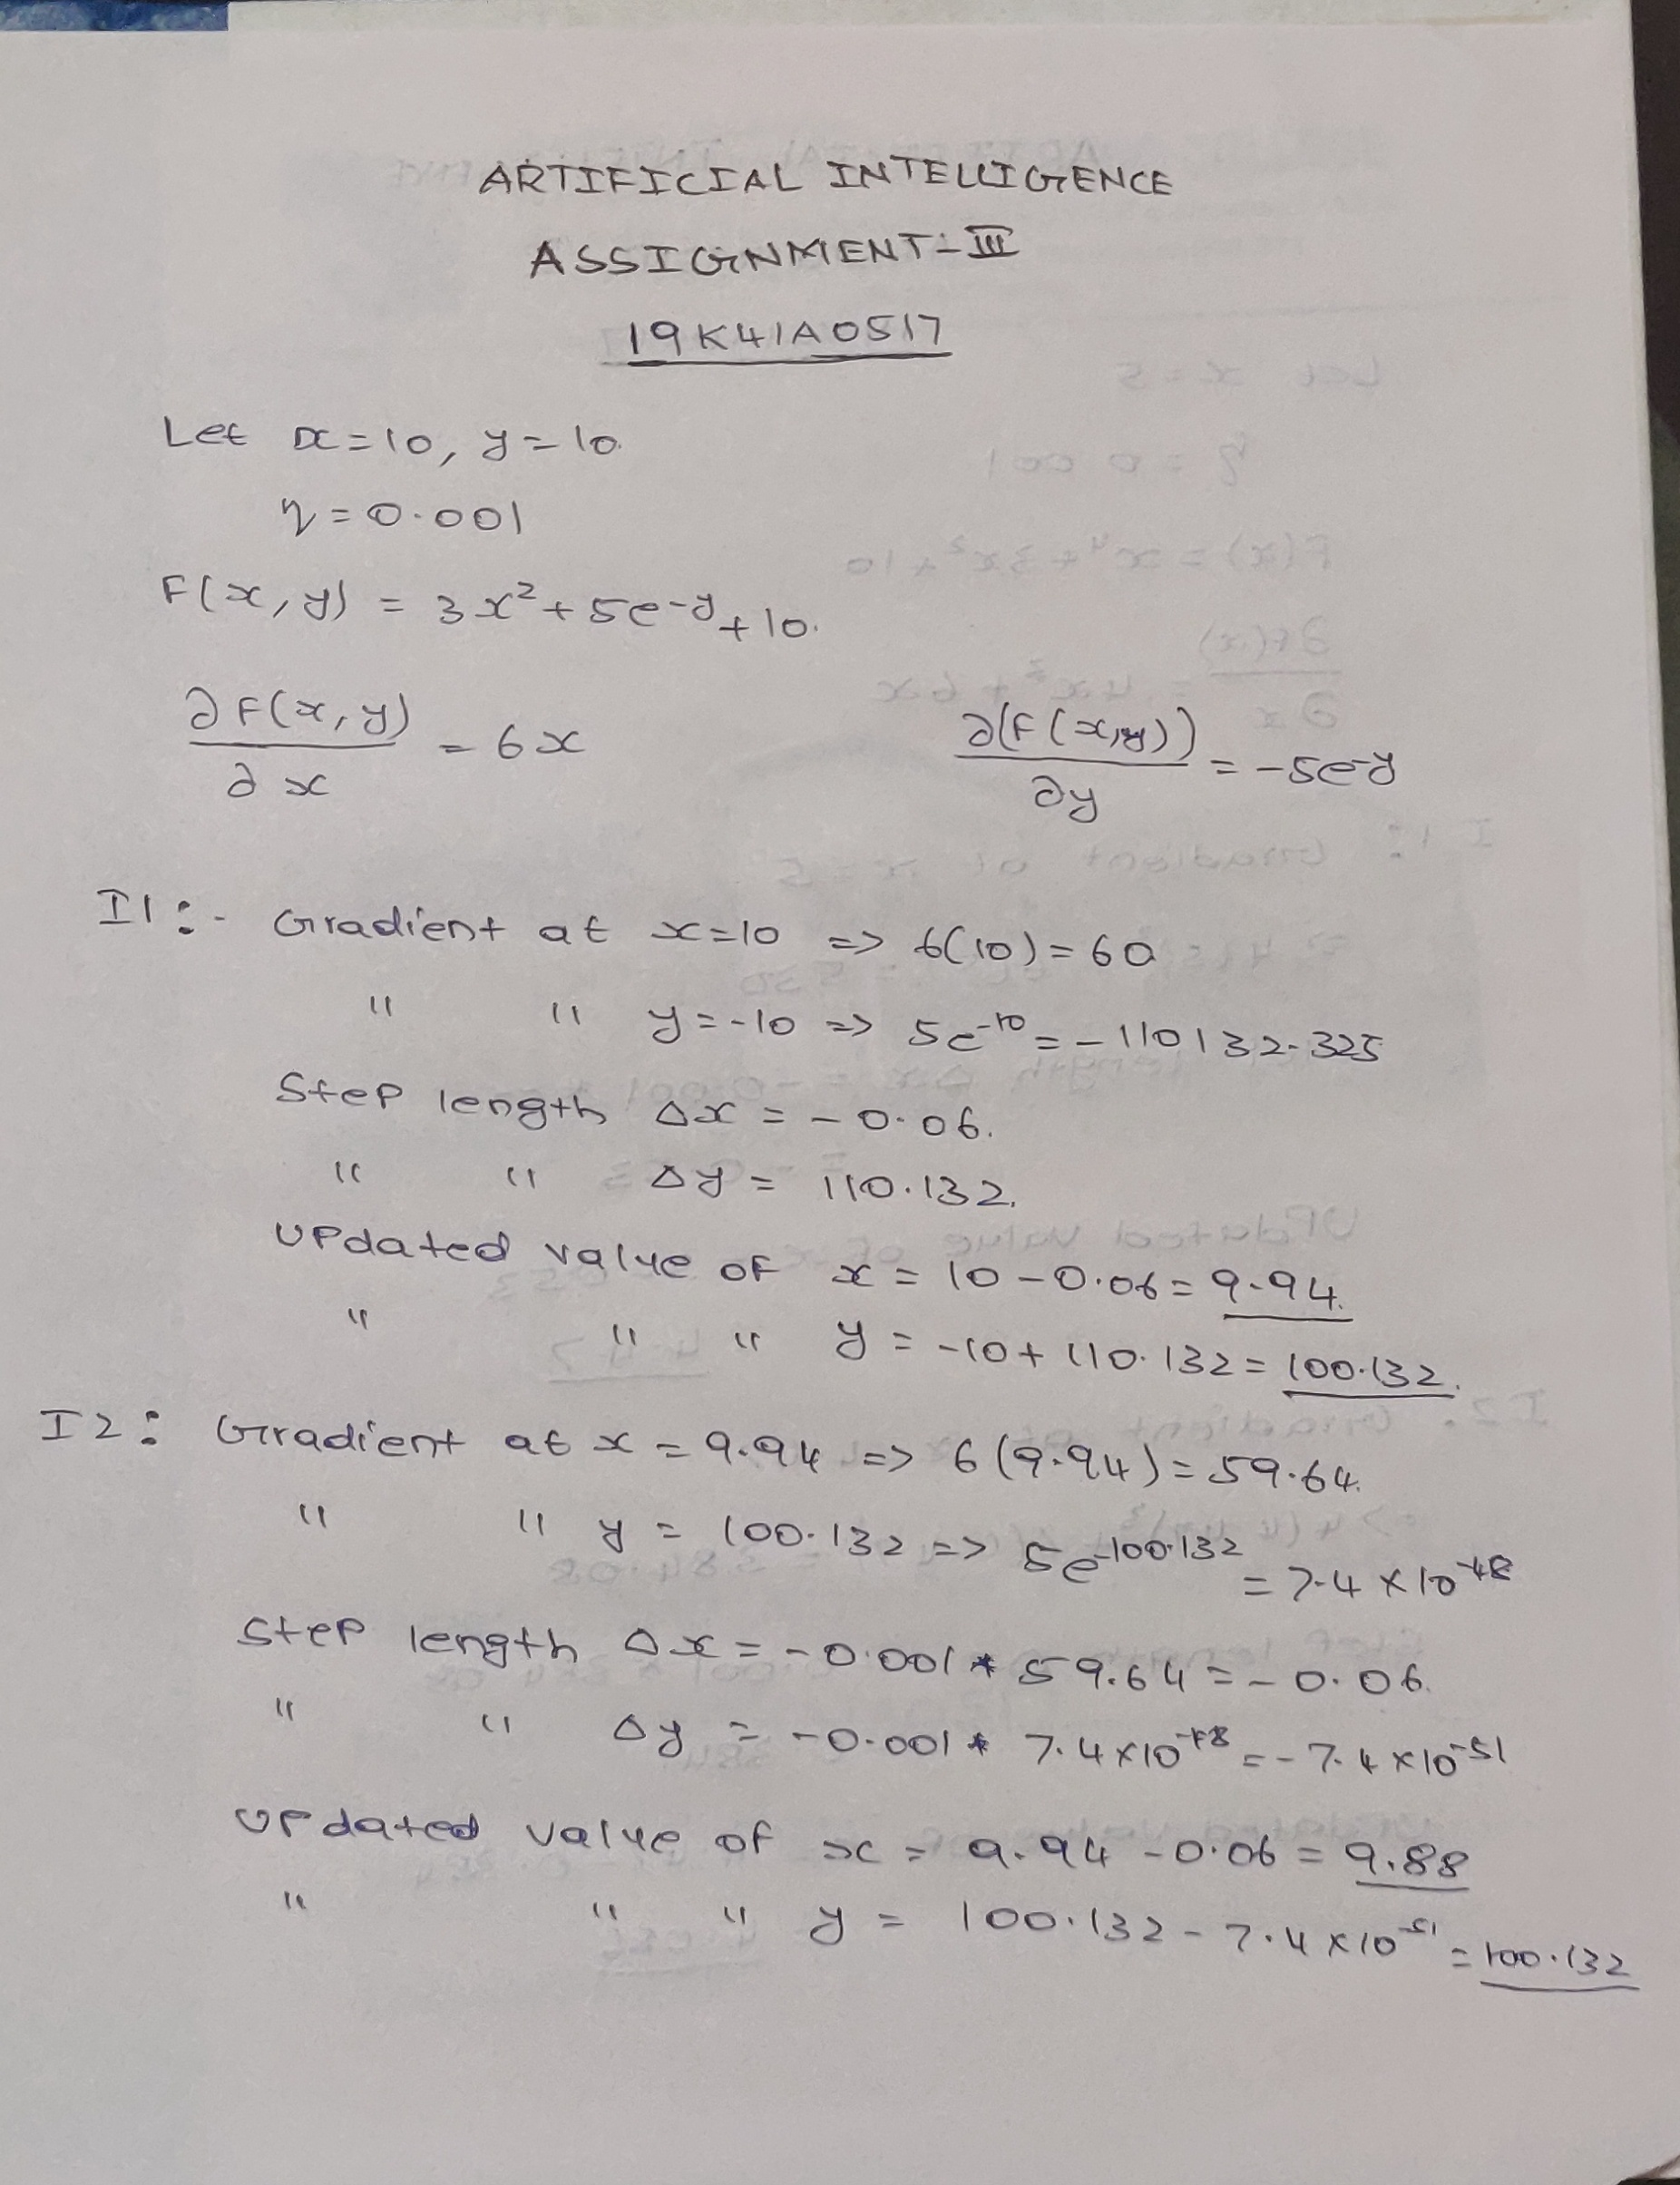 ARTIFICIAL INTELLIGENCE
ASSIGNMENT-III
19K41A0517
Let x=10, y=10.
η=0.001
F(x,y) = 3x²+5e^-y+10.
∂F(x,y)/∂x = 6x    ∂(F(x,y))/∂y = -5e^-y
I1:- Gradient at x=10 => 6(10)=60
" " y=-10 => 5e^-10 = -110132.325
Step length Δx = -0.06.
" " Δy = 110.132.
Updated value of x = 10-0.06=9.94.
" " " y = -10+110.132=100.132.
I2: Gradient at x=9.94 => 6(9.94)=59.64.
" " y = 100.132 => 5e^-100.132 = 7.4×10^-48
Step length Δx=-0.001*59.64=-0.06.
" " Δy = -0.001*7.4×10^-48=-7.4×10^-51
Updated value of x = 9.94-0.06=9.88
" " " y = 100.132-7.4×10^-51=100.132